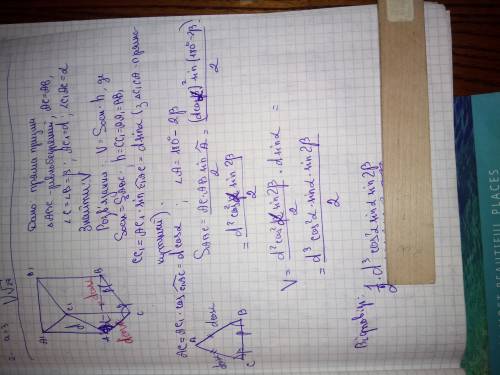 Дано: пряма призма
△ABC - рівнобедрений, AC=AB,
∠C=∠B=β; AC₁=d; ∠C₁AC=α
Знайти: V
Розв'язання: V=Sосн·h, де
Sосн=S△ABC; h=CC₁=AA₁=BB₁
CC₁=AC₁·sin C₁AC=d sinα (з △C₁CA-прямо-
кутний).
AC=AC₁·cos C₁AC=d cosα; ∠A=180°-2β
S△ABC = AC·AB sin A / 2 = (d cosα)² sin(180°-2β) / 2
= d² cos²α sin2β / 2
V = d² cos²α sin2β / 2 · d sinα =
= d³ cos²α sinα · sin2β / 2
Відповідь: 1/2 d³ cos²α sinα sin2β
A₁
B₁
C₁
d
A
B
C
d cosα
d cosα
A
d cosα
d cosα
C
B
β
β